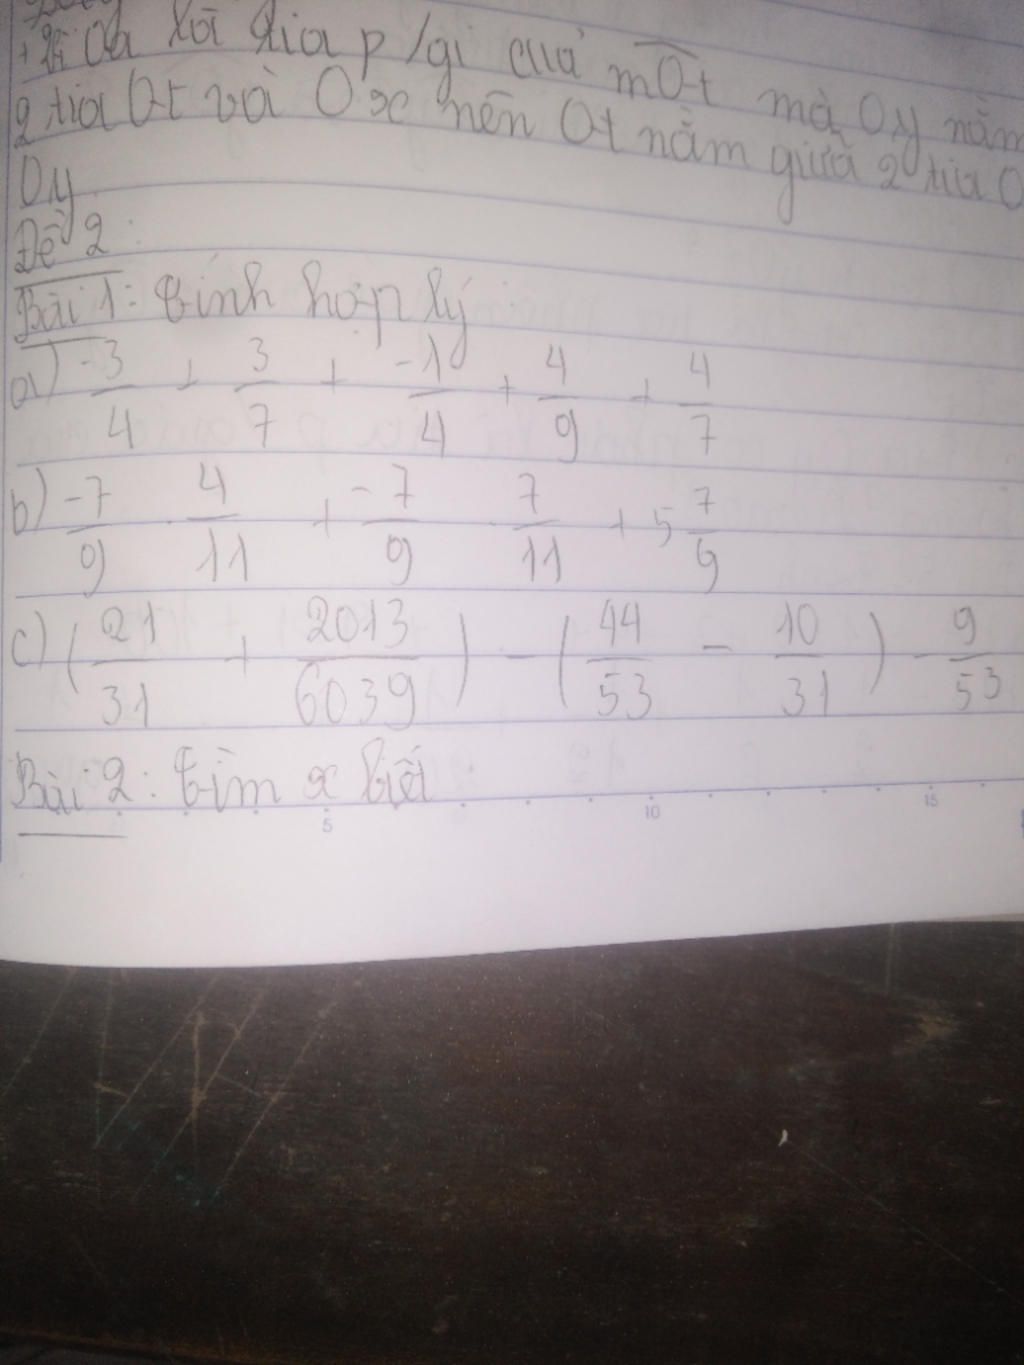 + Vì Oa là tia p/gi của mOt mà Oy nằm
2 tia Ot và Ox nên Ot nằm giữa 2 tia O
Oy
Đề 2:
Bài 1: Tính hợp lý
a) -3/4 + 3/7 + -1/4 + 4/9 + 4/7
b) -7/9 . 4/11 + -7/9 . 7/11 + 5 7/9
c) (21/31 + 2013/6039) - (44/53 - 10/31) - 9/53
Bài 2: Tìm x biết
5 10 15